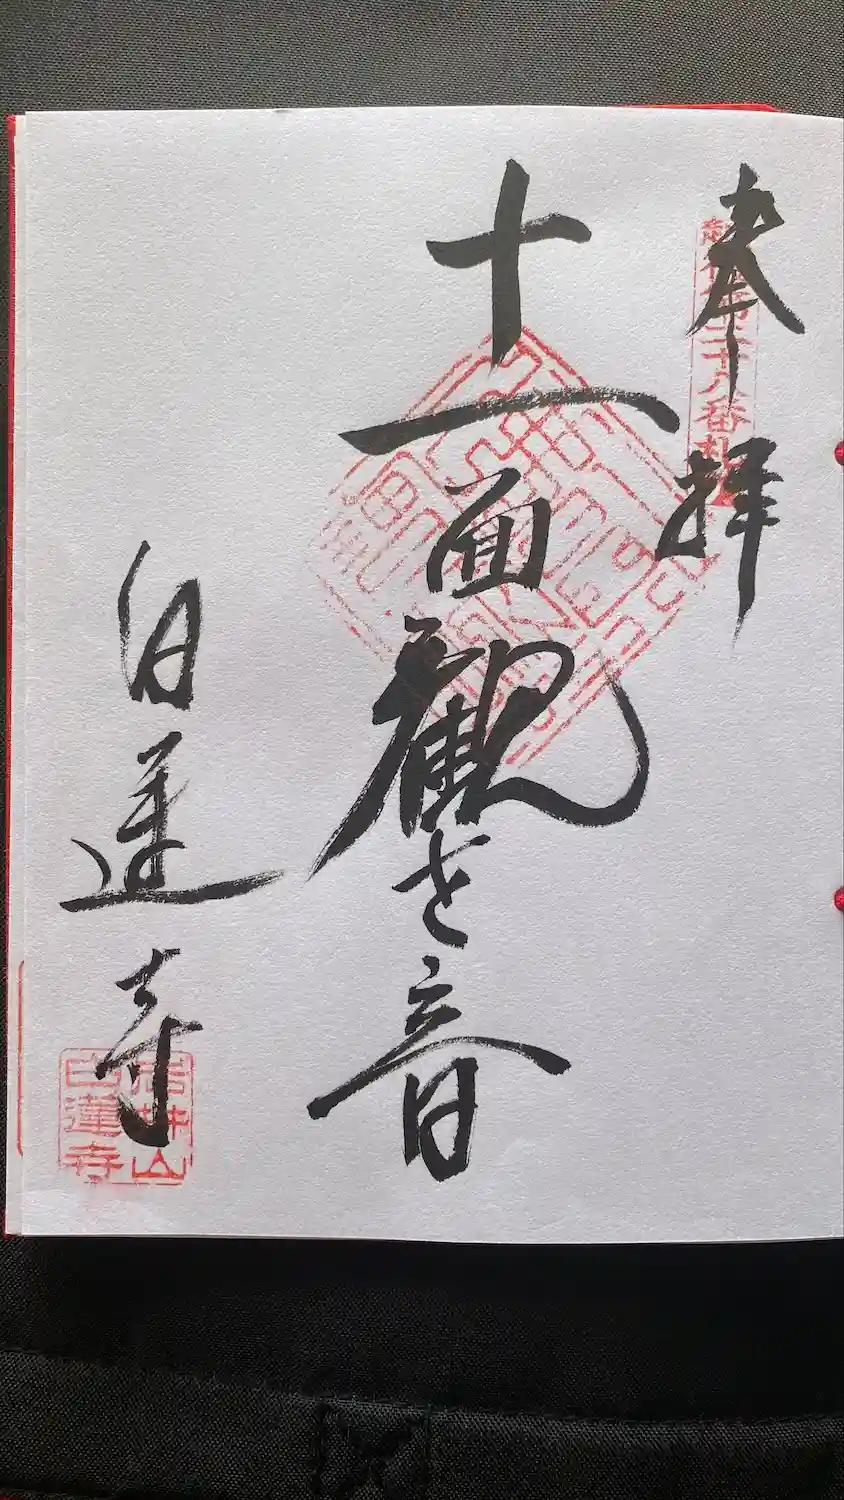 奉拝
第二十八番札所
十一面観世音
白蓮寺
白蓮寺